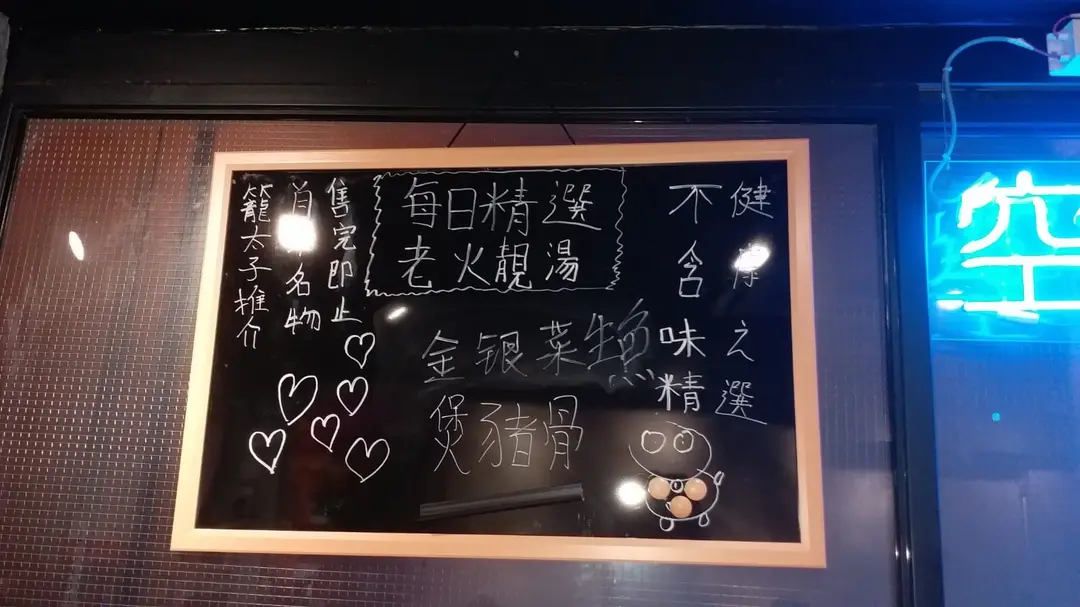 健康之選
不含味精
每日精選
老火靚湯
金银菜生魚
煲豬骨
售完即止
名物
籠太子推介
空